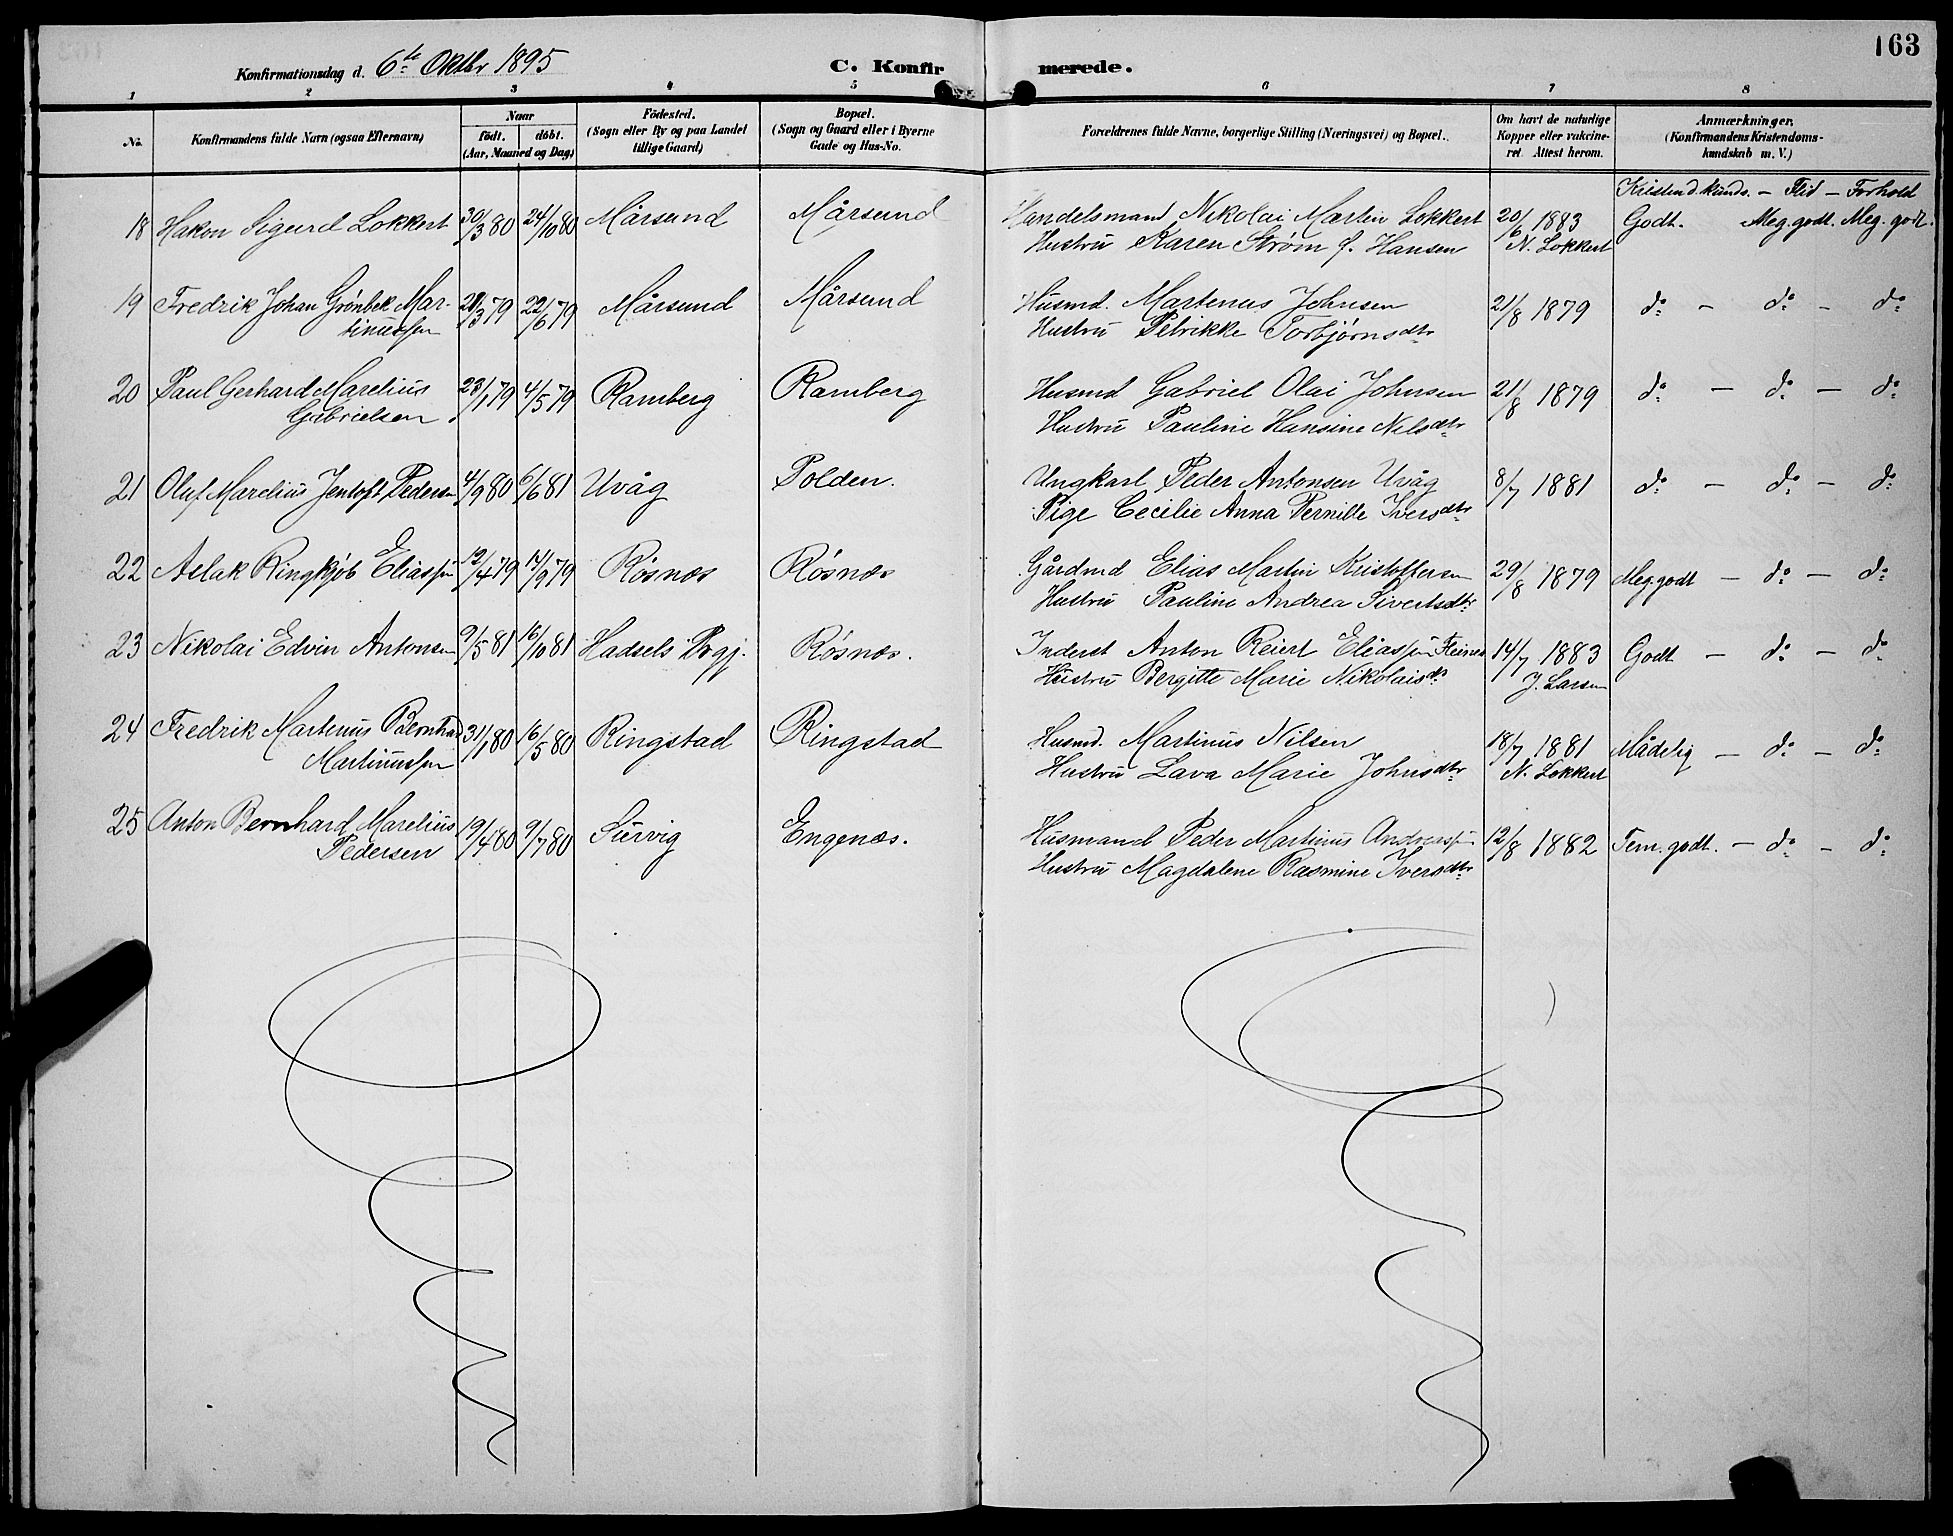 163
Konfirmationsdag d. 6te Oktbr 1895
C. Konfirmerede.
1 2 3 4 5 6 7 8
No. Konfirmandens fulde Navn (ogsaa Efternavn) Naar født. døbt. (Aar, Maaned og Dag) Fødested. (Sogn eller By og paa Landet tillige Gaard) Bopæl. (Sogn og Gaard eller i Byerne Gade og Hus-No. Forældrenes fulde Navne, borgerlige Stilling (Næringsvei) og Bopæl. Om havt de naturlige Kopper eller vakcineret. Attest herom. Anmærkninger. (Konfirmandens Kristendomskundskab m. V.)
Kristend.kunds. – Flid – Forhold
18 Hakon Sigurd Lokkert 30/3 80 24/10 80 Mårsund Mårsund Handelsmand Nikolai Martin Lokkert 20/6 1883 Godt. Meg. godt. Meg. godt.
Hustru Karen Strøm f. Hansen N. Lokkert
19 Fredrik Johan Grønbek Mar- 3 79 22/6 79 Mårsund Mårsund Husmd. Martenus Johnsen 21/8 1879 do – do – do
tinussen Hustru Petrikke Torbjørnsdtr
20 Paul Gerhard Marelius 23/1 79 4/5 79 Ramberg Ramberg Husmd Gabriel Olai Johnsen 21/8 1879 do – do – do
Gabrielsen Hustru Pauline Hansine Nilsdtr
21 Oluf Marelius Jentoft Pedersen 4/9 80 6/6 81 Uvåg Polden. Ungkarl Peder Antonsen Uvåg 8/7 1881 do – do – do
Pige Cecilie Anna Pernille Iversdtr
22 Aslak Ringkjøb Eliassen 12/4 79 14/9 79 Røsnæs Røsnæs Gårdmd Elias Martin Kristoffersen 29/8 1879 Meg. godt – do – do
Hustru Pauline Andrea Sivertsdtr
23 Nikolai Edvin Antonsen 9/5 81 16/10 81 Hadsels Prgj. Røsnæs. Inderst Anton Reiert Eliassen Fleines 14/7 1883 Godt – do – do
Hustru Bergitte Marie Nikolaisdtr J. Larsen
24 Fredrik Martenus Bernhard 31/1 80 16/5 80 Ringstad Ringstad Husmd. Martinus Nilsen 18/7 1881 Mådelig – do – do
Martinussen Hustru Lava Marie Johnsdtr N. Lokkert
25 Anton Bernhard Marelius 19/4 80 9/7 80 Survig Engenæs. Husmand Peder Martinus Andreassen 12/8 1882 Tem. godt. – do – do
Pedersen Hustru Magdalene Rasmine Iversdtr